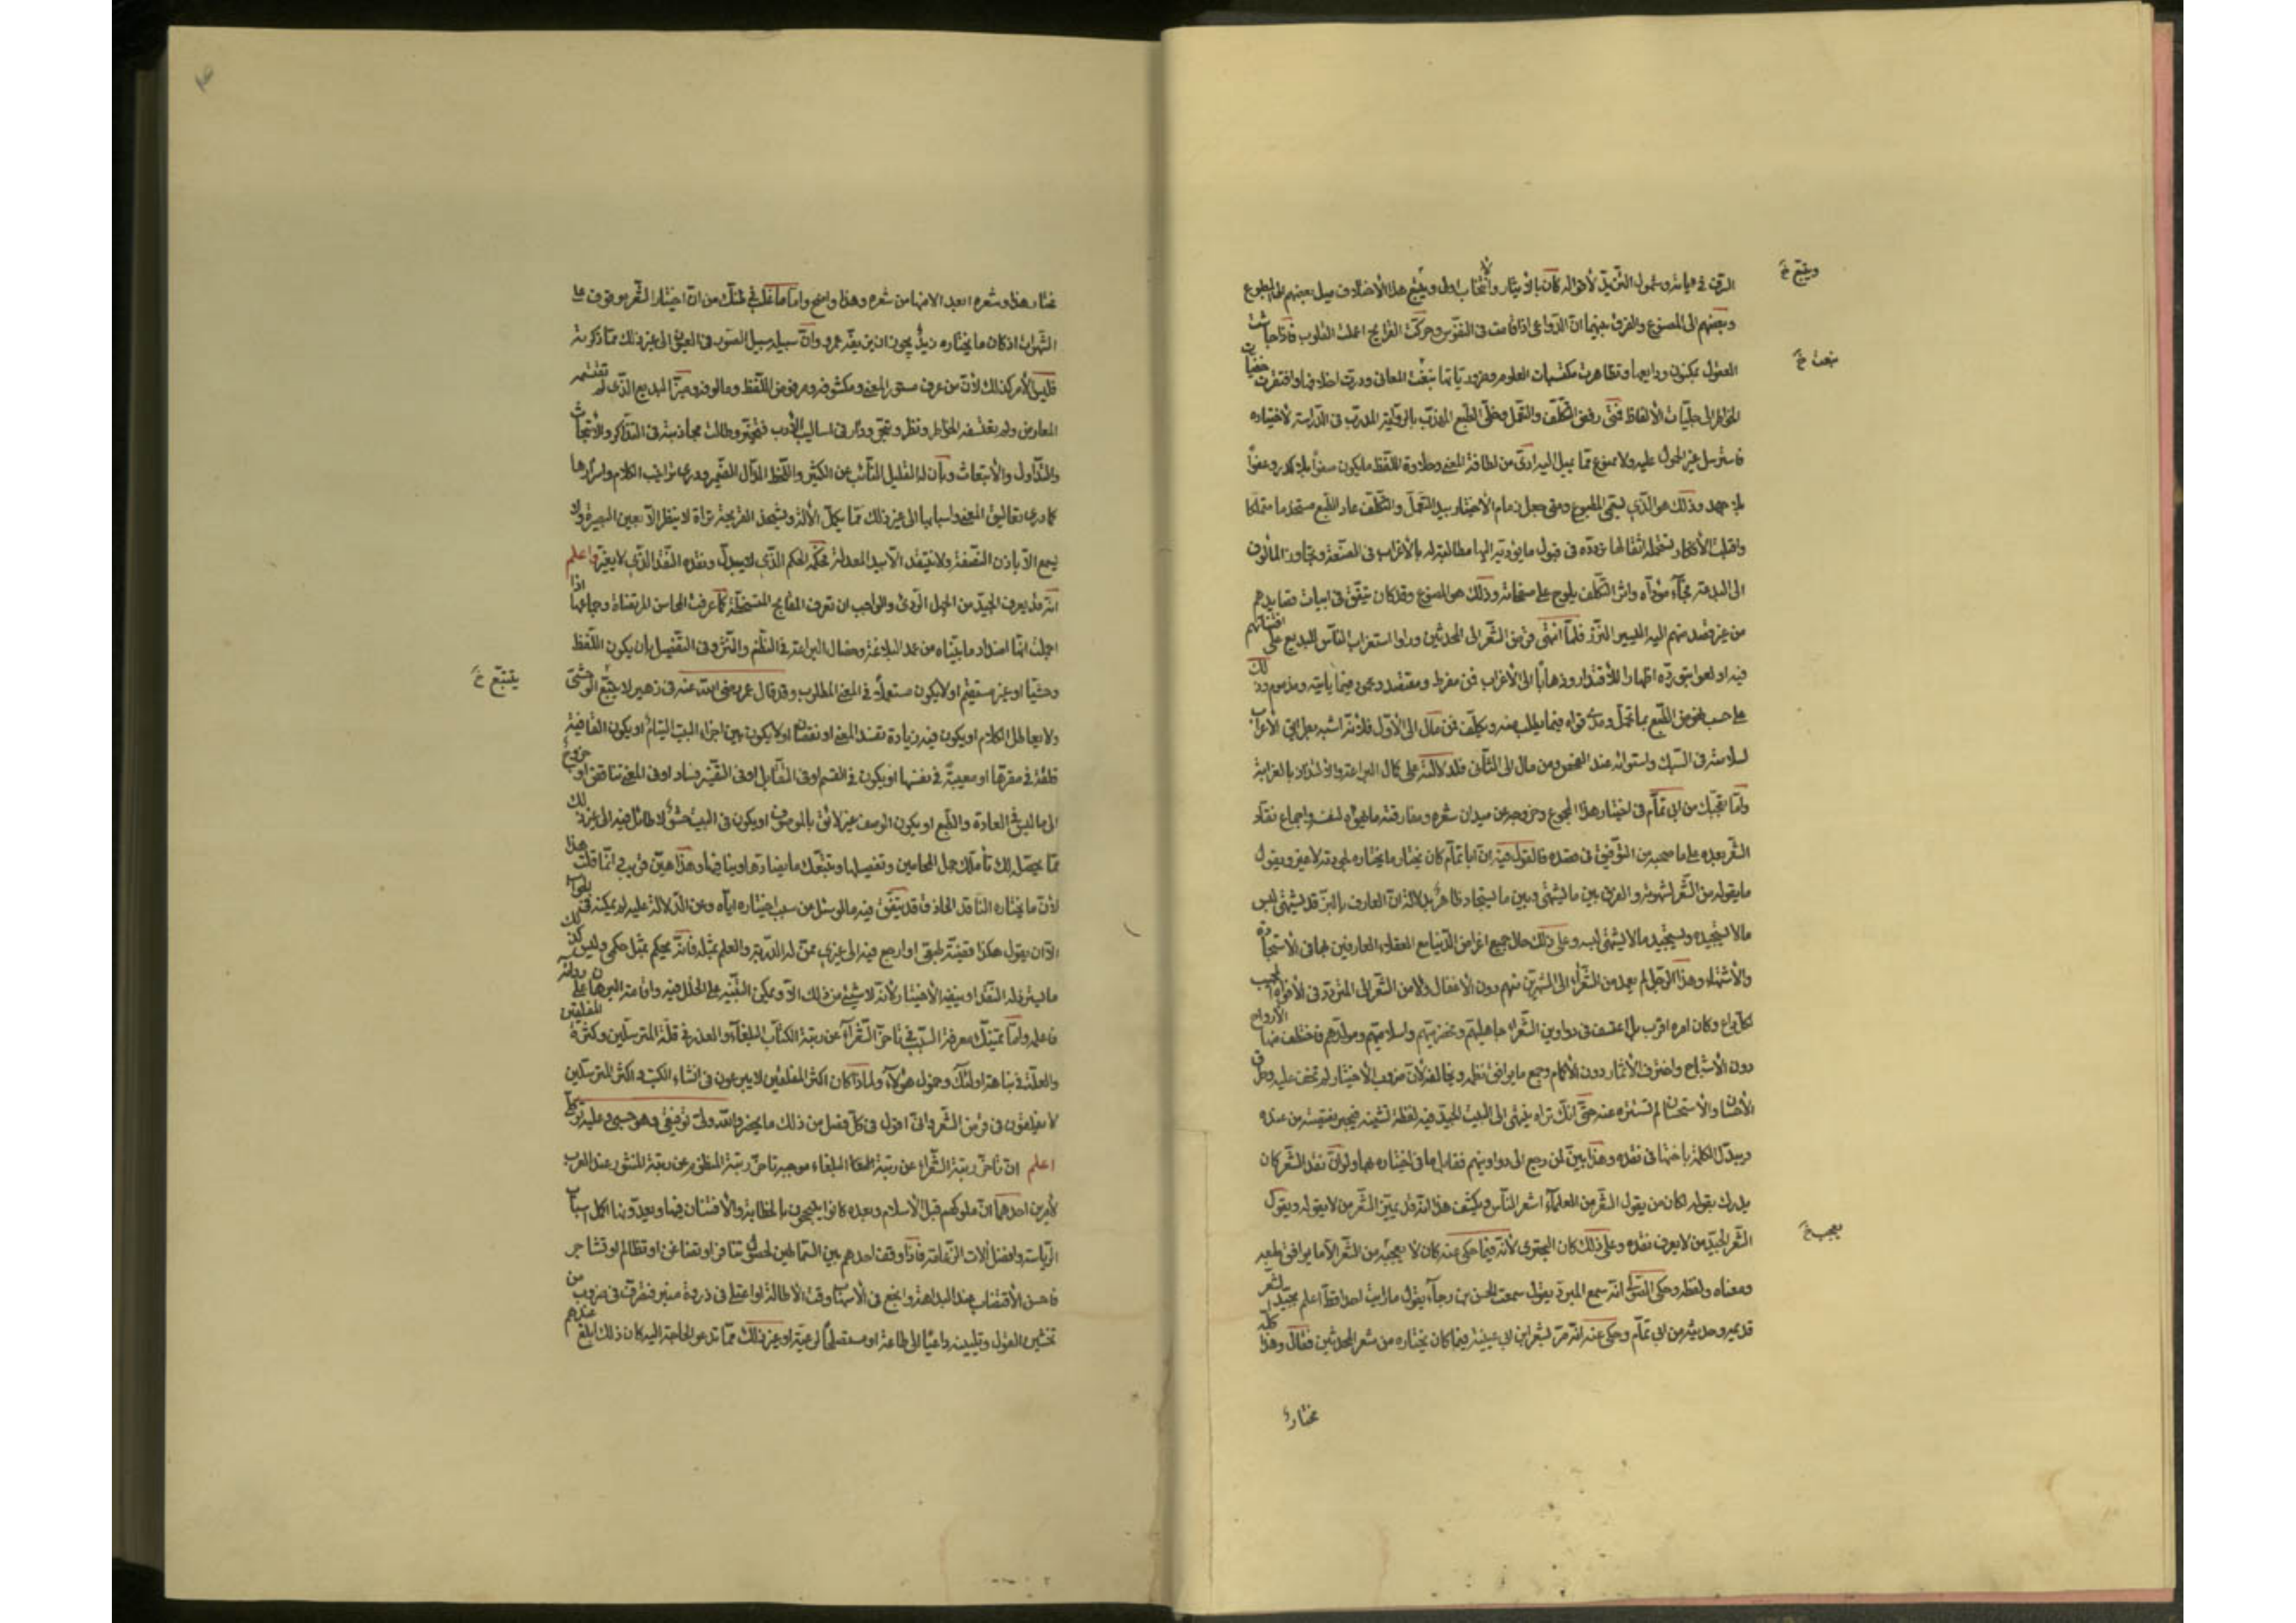 الرق في هيانه وشمول التنزيل لأقواله كان بالإيثار والانتخاب اولى ويتبع هذا الاختلاف ميل بعضهم الى المطبوع
ويتبع خ
وبعضهم الى المصنوع والفرق بينهما ان الدواعى اذا قامت فى النفوس وحركت القرايح اعملت القلوب فاذا جاشت
العقول بمكنون ودايعها وتظاهرت مكتسبات العلوم وضرورياتها نبعت المعانى ودرت اخلافها وافتقرت خفيات
نبعت خ
الخواطر الى جليات الألفاظ فمتى رفض التكلف والتعمل وخلى الطبع المهذب بالرواية المدرب فى الدراسة لاختياره
فاسترسل غير محمول عليه ولا ممنوع مما يميل اليه ادى من لطافة المعنى وحلاوة اللفظ ما يكون صفوا بلا كدر وعفوا
بلا جهد وذلك هو الذي يسمى المطبوع ومتى جعل زمام الاختيار بيد التعمل والتكلف عاد الطبع مستخدما متملكا
واقبلت الأفكار تستحمله اثقالها وتردده فى قبول ما يؤديه اليها مطالبة له بالأغراب فى الصنعة وتجاوز المألوف
الى البدعة فجاء مؤداه واثر التكلف يلوح على صفحاته وذلك هو المصنوع وقد كان يتفق فى ابيات قصايدهم
من غير قصد منهم اليه اليسير النزر فلما انتهى قرض الشعر الى المحدثين وراوا استغراب الناس للبديع على افتنانهم
فيه اولعوا بتورده اظهارا للأقتدار وذهابا الى الأغراب فمن مفرط ومقتصد ومحمود فيما يأتيه ومذموم وذلك
على حسب نهوض الطبع بما تحمل ومدى قواه فيما يطلب منه ويكلف فمن مال الى الأول فلأنه اشبه بطرائق الأعراب
لسلامته فى السبك واستوائه عند الفحص ومن مال الى الثانى فلدلالته على كمال البراعة والألتذاذ بالغرابة
واما تعجبك من ابى تمام فى اختيار هذا المجموع وخروجه عن ميدان شعره ومفارقته ما يهواه لنفسه واجماع نقاد
الشعر بعده على ما صحبه من التوفيق فى قصده فالقول فيه ان ابا تمام كان يختار ما يختاره لجودته لا غير ويقول
ما يقوله من الشعر لشهوته والفرق بين ما يشتهى وبين ما يستجاد ظاهر بدلالة ان العارف بالبز قد يشتهى لبس
مالا يستجيده ويستجيد مالا يشتهى لبسه وعلى ذلك حال جميع اعراض الدنيا مع العقلاء العارفين بها فى الأستجادة
والأشتهاء وهذا الرجل لم يعمد من الشعراء الى المشتهرين منهم دون الأغفال ولا من الشعر الى المتردد فى الأفواه المجيب
لكل داع وكان امره اقرب بل اعتسف فى دواوين الشعراء جاهليتهم ومخضرميهم واسلاميهم ومولدهم فاختطف منها الأرواح
دون الأشباح واخترف الأثمار دون الأكمام وجمع ما يوافق نظمه ويخالفه لأن ضروب الأختيار لم تخف عليه وطرق
الأحسان والأستحسان لم تستتر عنه حتى انك تراه ينتهى الى البيت الجيد فيه لفظة تشينه فيجبر نقيصته من عنده
ويبدل الكلمة باختها فى نقده وهذا يبين لمن رجع الى دواوينهم فقابل ما فى اختياره بها ولو ان نقد الشعر كان
يدرك بقوله لكان من يقول الشعر من العلماء اشعر الناس ويكشف هذا انه قد يميز الشعر من لا يقوله ويقول
الشعر الجيد من لا يعرف نقده وعلى ذلك كان البحترى لأنه فيما حكى عنه كان لا يعجبه من الشعر الا ما يوافق طبعه
يعجب خ
ومعناه ولفظه وحكى الصولى انه سمع المبرد يقول سمعت الحسن بن رجاء يقول ما رايت احدا قط اعلم بجيد الشعر
قديمه وحديثه من ابى تمام وحكى عنه انه مر بشعر ابن ابى عيينة فيما كان يختاره من شعر المحدثين فقال وهذا كله
مختار
مختار هذا وشعره ابعد الاشياء من شعره وهذا واضح واما ما غلب فى ظنك من ان اختيار الشعر موقوف على
الشهوات اذ كان ما يختاره زيد يجوز ان يزيفه عمرو وان سبيله سبيل الصور فى العيون الى غير ذلك مما ذكرته
فليس الأمر كذلك لأن من عرف مستور المعنى ومكشوفه ومرفوض اللفظ ومألوفه وميز البديع الذى لم تقتسمه
المعارض ولم تعتسفه الخواطر ونظر وتبحر ودار فى اساليب الأدب فتخير وطالت مجاذبته فى التذاكر والأبتحاث
والتداول والأبتعاث وبان له القليل النائب عن الكثير واللحظ الدال على الضمير ودرى تراكيب الكلام واسرارها
كما درى تعاليق المعنى واسبابها الى غير ذلك مما يكمل الآلة ويشحذ القريحة تراه لا ينظر الا بعين البصيرة ولا
يسمع الا باذن النصفة ولا ينتقد الا بيد المعدلة فحكمه الحكم الذي لا يبدل ونقده النقد الذي لا يغير واعلم
انه قد يعرف الجيد من يجهل الردى والواجب ان تعرف المقابح المتسخطة كما عرفت المحاسن المرتضاة وجماعها اذا
اجملت انها اضداد ما بيناه من عمد البلاغة وخصال البراعة فى النظم والنثر وفى التفصيل بان يكون اللفظ
وحشيا او غير مستقيم او لا يكون مستعملا فى المعنى المطلوب وقد قال عمر رضى الله عنه فى زهير لا يتتبع الوحشى
يتتبع خ
ولا يعاظل الكلام او يكون فيه زيادة تفسد المعنى او نقصان او لا يكون بين اجزاء البيت التيام او يكون القافية
قلقة فى مقرها او معيبة فى نفسها او يكون فى القسم او فى التقابل او فى التفسير فساد او فى المعنى تناقض او خروج
الى ما ليس فى العادة والطبع او يكون الوصف غير لائق بالموصوف او يكون فى البيت حشو لا طائل فيه الى غير ذلك
مما يحصله لك تأملك جل المحاسن وتفصيلها وتتبعك ما يضادها وينافيها وهذا هين قريب اذا قلت هذا
لأن ما يختاره الناقد الحاذق قد يتفق فيه ما لو سئل عن سبب اختياره اياه وعن الدلالة عليه لم يمكنه فى جوابه
الا ان يقول هكذا قضية طبعى او ارجع فيه الى غيرى ممن له الدربة والعلم بمثله فانه يحكم بمثل حكمى وليس كذلك
ما يسترذله النقد او ينفيه الأختيار لأنه لا شئ من ذلك الا ويمكن التنبيه على الخلل فيه واقامة البرهان على رداءته
فاعلمه واما تمنيك معرفة السبب فى تأخر الشعراء عن رتبة الكتاب البلغاء والعذر فى قلة المترسلين وكثرة المفلقين
والعلة فى نباهة اولئك وخمول هؤلاء ولماذا كان اكثر المفلقين لا يبرعون فى انشاء الكتب واكثر المترسلين
لا يفلقون فى قرض الشعر فانى اقول فى كل فصل من ذلك ما يحضر والله ولى توفيقى وهو حسبى وعليه توكلى
اعلم ان تأخر رتبة الشعراء عن رتبة البلغاء موجبه تأخر رتبة المنظوم عن رتبة المنثور عند العرب
لأمرين احدهما ان ملوكهم قبل الأسلام وبعده كانوا يتبجحون بالخطابة والأفتنان فيها ويعدونها اكمل اسباب
الرياسة وافضل آلات الزعامة فاذا وقف احدهم بين السماطين لحصول تنافر او تضاغن او تظالم او تشاجر
فاحسن الأقتضاب عند البداهة وانجع فى الأسهاب وقت الأطالة او اعتلى فى ذروة منبر فتصرف فى ضروب من
تخشين القول وتليينه داعيا الى طاعة او مستصلحا لرعية او غير ذلك مما تدعو الحاجة اليه كان ذلك ابلغ عندهم